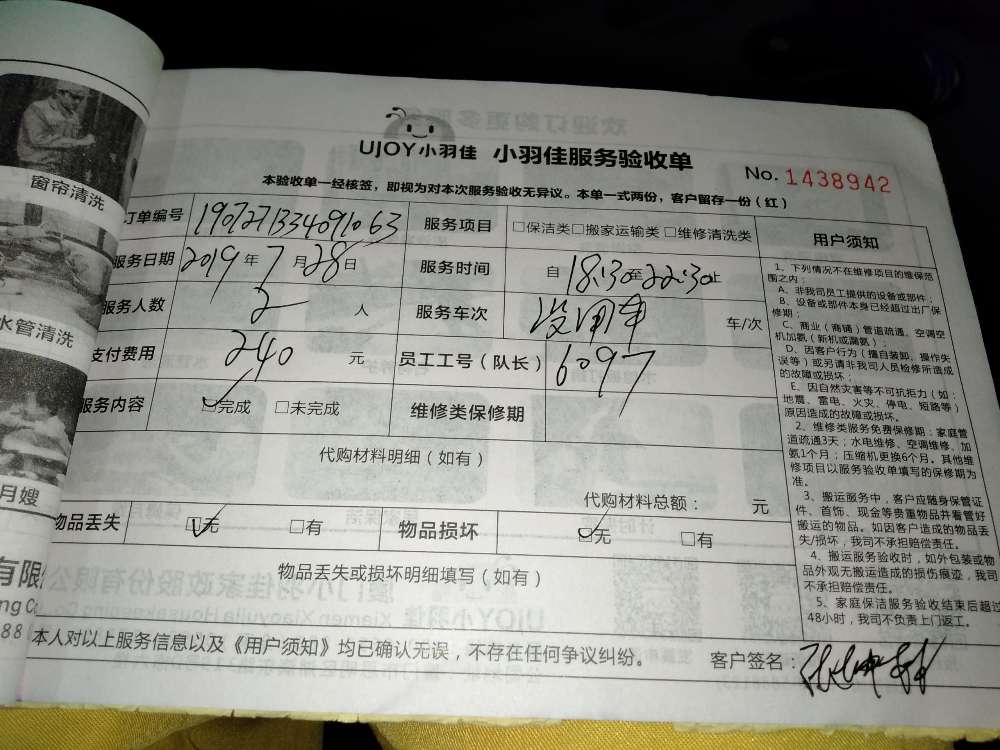 窗帘清洗
水管清洗
月嫂
有限
ng Co
88
UJOY小羽佳 小羽佳服务验收单
No. 1438942
本验收单一经核签，即视为对本次服务验收无异议。本单一式两份，客户留存一份（红）
订单编号 服务项目 □保洁类□搬家运输类□维修清洗类
服务日期 2019年7月28日 服务时间 自18:30至22:30止
服务人数 2人 服务车次 没用车 车/次
支付费用 240元 员工工号（队长） 6097
服务内容 ☑完成 □未完成 维修类保修期
代购材料明细（如有）
代购材料总额： 元
物品丢失 ☑无 □有 物品损坏 ☑无 □有
物品丢失或损坏明细填写（如有）
用户须知
1、下列情况不在维修项目的维保范
围之内：
A、非我司员工提供的设备或部件；
B、设备或部件本身已经超过出厂保
修期；
C、商业（商铺）管道疏通、空调空
机加氨（新机或漏氨）；
D、因客户行为（擅自装卸、操作失
误等）或另请非我司人员检修所造成
的故障或损坏；
E、因自然灾害等不可抗拒力（如：
地震、雷电、火灾、停电、短路等）
原因造成的故障或损坏。
2、维修类服务免费保修期：家庭管
道疏通3天；水电维修、空调维修、加
氨1个月；压缩机更换6个月。其他维
修项目以服务验收单填写的保修期为
准。
3、搬运服务中，客户应随身保管证
件、首饰、现金等贵重物品并看管好
搬运的物品。如因客户造成的物品丢
失/损坏，我司不承担赔偿责任。
4、搬运服务验收时，如外包装或物
品外观无搬运造成的损伤痕迹，我司
不承担赔偿责任。
5、家庭保洁服务验收结束后超过
48小时，我司不负责上门返工。
本人对以上服务信息以及《用户须知》均已确认无误，不存在任何争议纠纷。 客户签名：